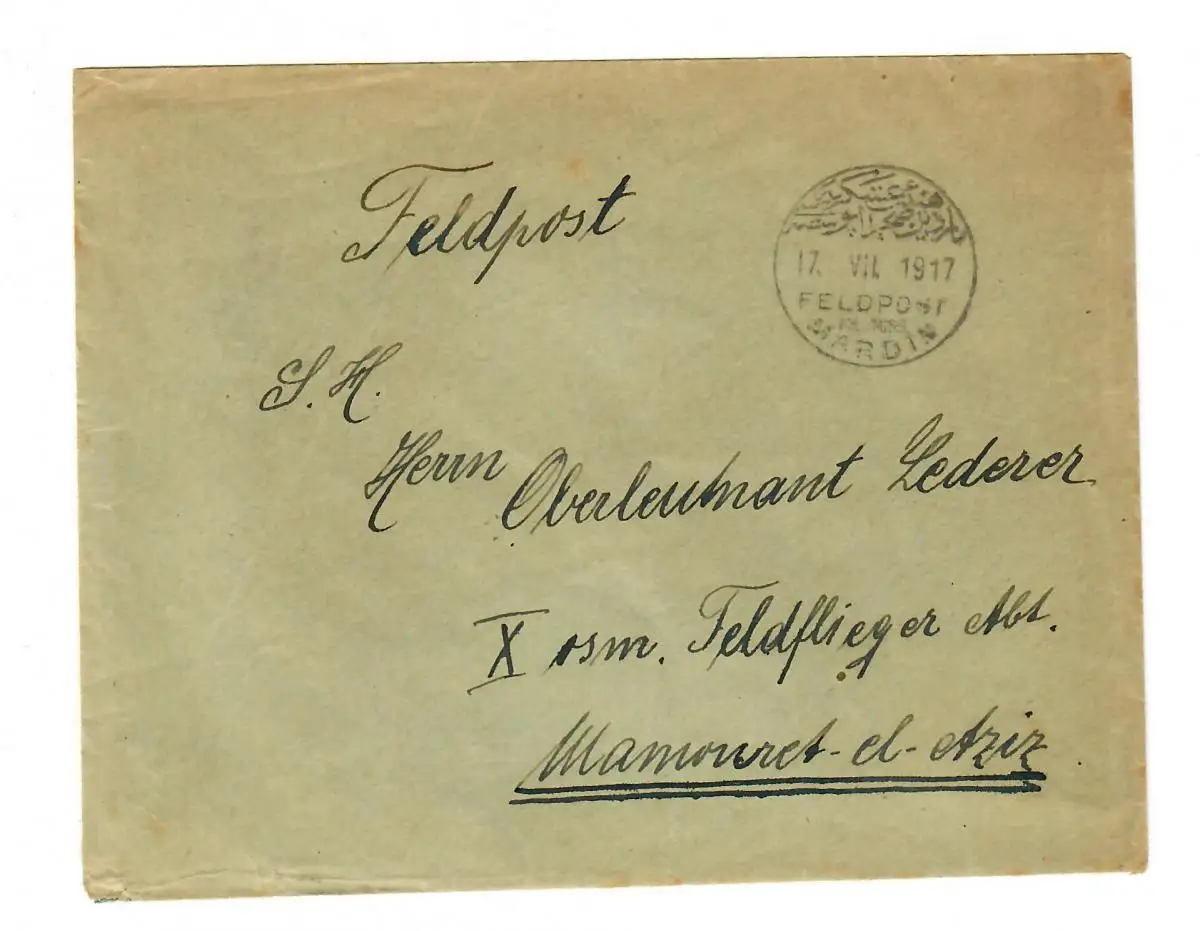 Feldpost
17. VII. 1917
FELDPOST
MARDIN
S. H.
Herrn Oberleutnant Lederer
X osm. Feldflieger Abt.
Mamouret-el-Aziz